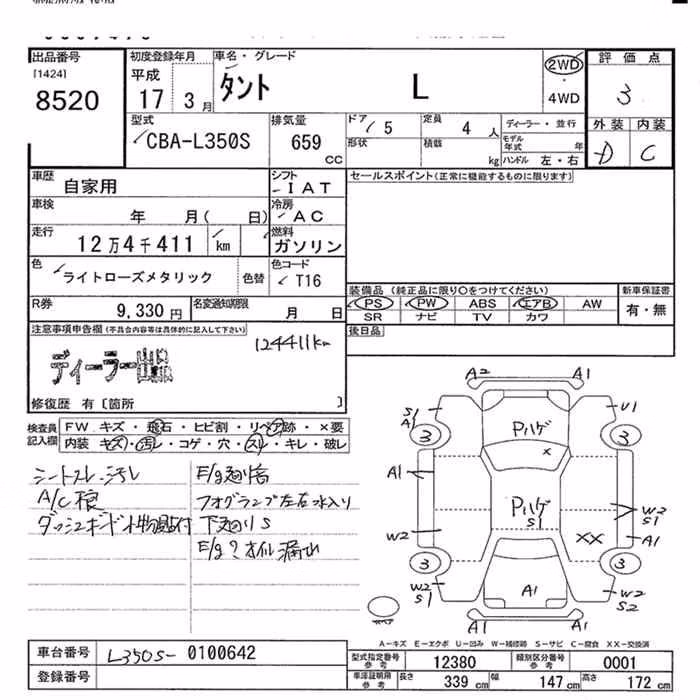 出品番号
[1424]
8520
初度登録年月
平成
17 3月
車名・グレード
タント L
2WD
・
4WD
評価点
3
外装 内装
D C
型式
CBA-L350S
排気量
659
CC
ドア
5
定員
4 人
ディーラー・並行
形状
積載
kg
モデル年式 年
ハンドル 左・右
車歴
自家用
シフト
IAT
車検
年 月( 日)
冷房
AC
走行
12万4千411 km
燃料
ガソリン
色
ライトローズメタリック
色替
色コード
T16
R券
9,330円
名変通知期限
月 日
セールスポイント(正常に機能するものに限ります)
装備品 (純正品に限り〇をつけてください)
PS PW ABS エアB AW
SR ナビ TV カワ
新車保証書
有・無
後日品
注意事項申告欄(不具合内容等は具体的に記入して下さい)
124411km
ディーラー出品
修復歴 有〔箇所 〕
検査員記入欄
FW. キズ・飛石・ヒビ割・リペア跡・×要
内装 キズ・汚レ・コゲ・穴・スレ・キレ・破レ
シートスレ.汚レ
A/C
フォグランプ左右水入り
下廻りS
E/g?オイル漏れ
A2 A1
S1
A1
U1
3 3
Pハゲ
×
A1
Pハゲ
S1
W2
S1
A1
W2
××
3 3
W2
S1
A1
W2
S2
A1 A1
スペア
A-キズ E-エクボ U-凹み W-補修跡 S-サビ C-腐食 XX-交換済
車台番号
L350S- 0100642
登録番号
型式指定番号
参考
12380
類別区分番号
参考
0001
車庫証明用
参考
長さ 339 cm
幅 147 cm
高さ 172 cm